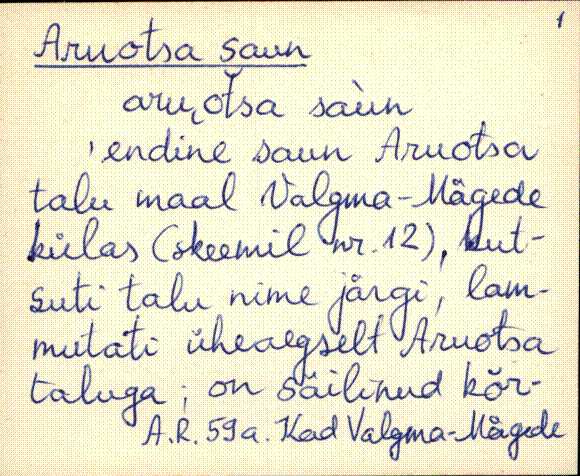 1
Aruotsa saun
aru͔otsa saùn
'endine saun Aruotsa
talu maal Valgma-Mägede
külas (skeemil nr. 12), kut-
suti talu nime järgi, lam-
mutati üheaegselt Aruotsa
taluga; on säilinud kõr-
A.R. 59 a. Kad Valgma-Mägede